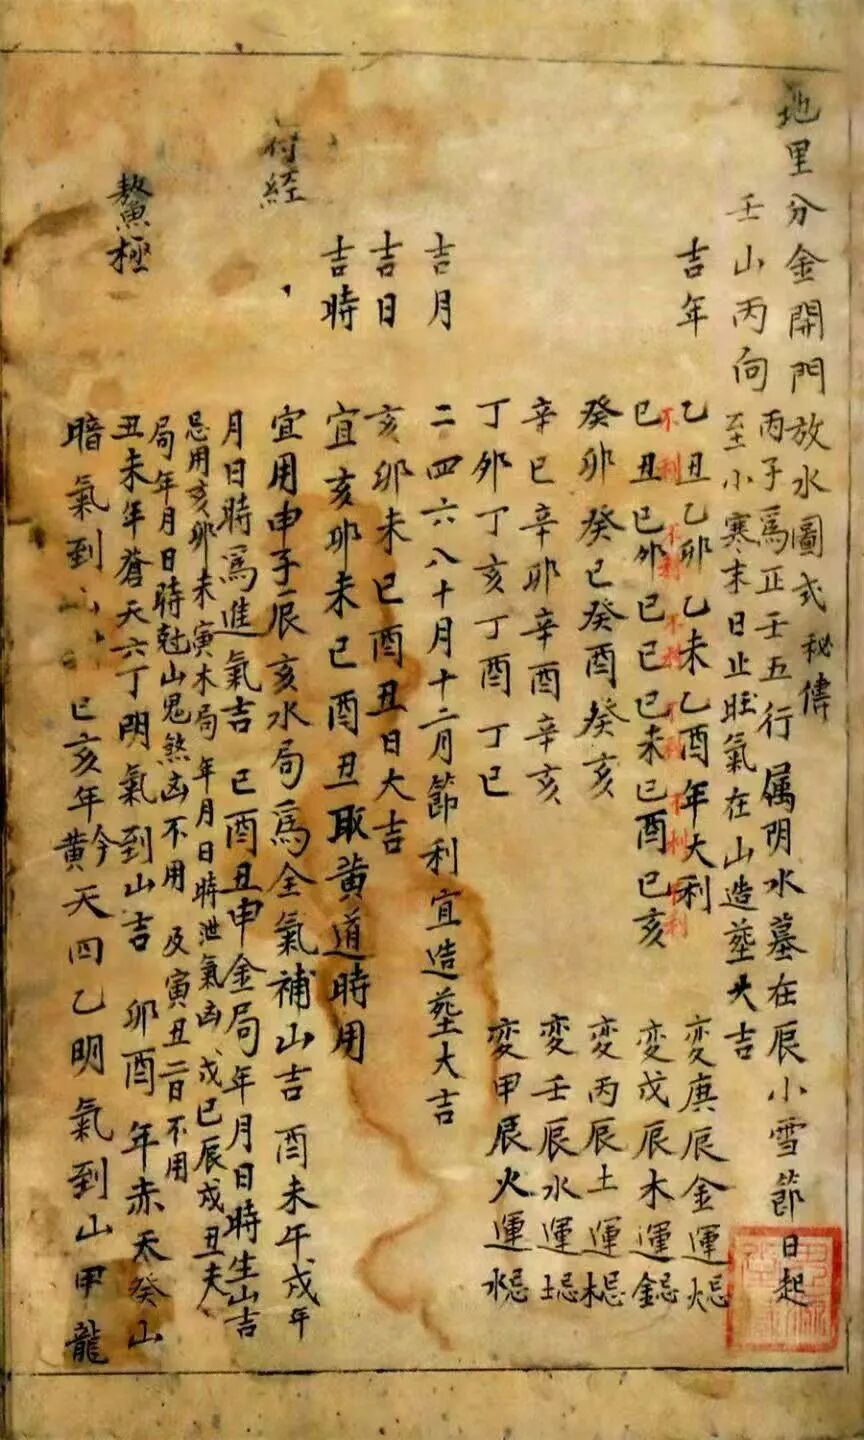 地里分金開門放水圖式秘傳
壬山丙向
丙子爲正壬五行属阴水墓在辰小雪節日起
至小寒末日止旺氣在山造塟大吉
吉年
乙丑乙卯乙未乙酉年大利
変庚辰金運忌火
己丑己卯己巳己未己酉己亥
変戊辰木運忌金
不利不利不利不利不利不利
癸卯癸巳癸酉癸亥
変丙辰土運忌木
辛巳辛卯辛酉辛亥
変壬辰水運忌土
丁卯丁亥丁酉丁巳
変甲辰火運忌水
吉月
二四六八十月十二月節利宜造塟大吉
吉日
亥卯未巳酉丑日大吉
吉時
宜亥卯未巳酉丑取黄道時用
付経
宜用申子辰亥水局爲全氣補山吉酉未午戌年
月日時爲進氣吉巳酉丑申金局年月日時生山吉
忌用亥卯未寅木局年月日時泄氣凶戊己辰戌丑未
局年月日時尅山鬼煞凶不用及寅丑二日不用
鰲極
丑未年蒼天六丁阴氣到山吉卯酉年赤天癸山
暗氣到巳亥年黄今天四乙明氣到山甲龍